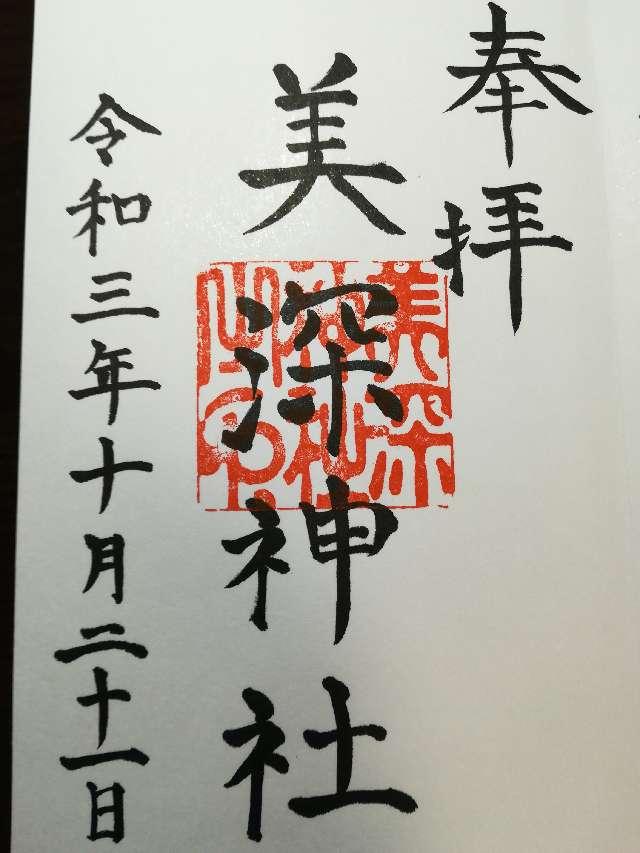 奉拝
美深神社
美深神社之印
令和三年十月二十一日